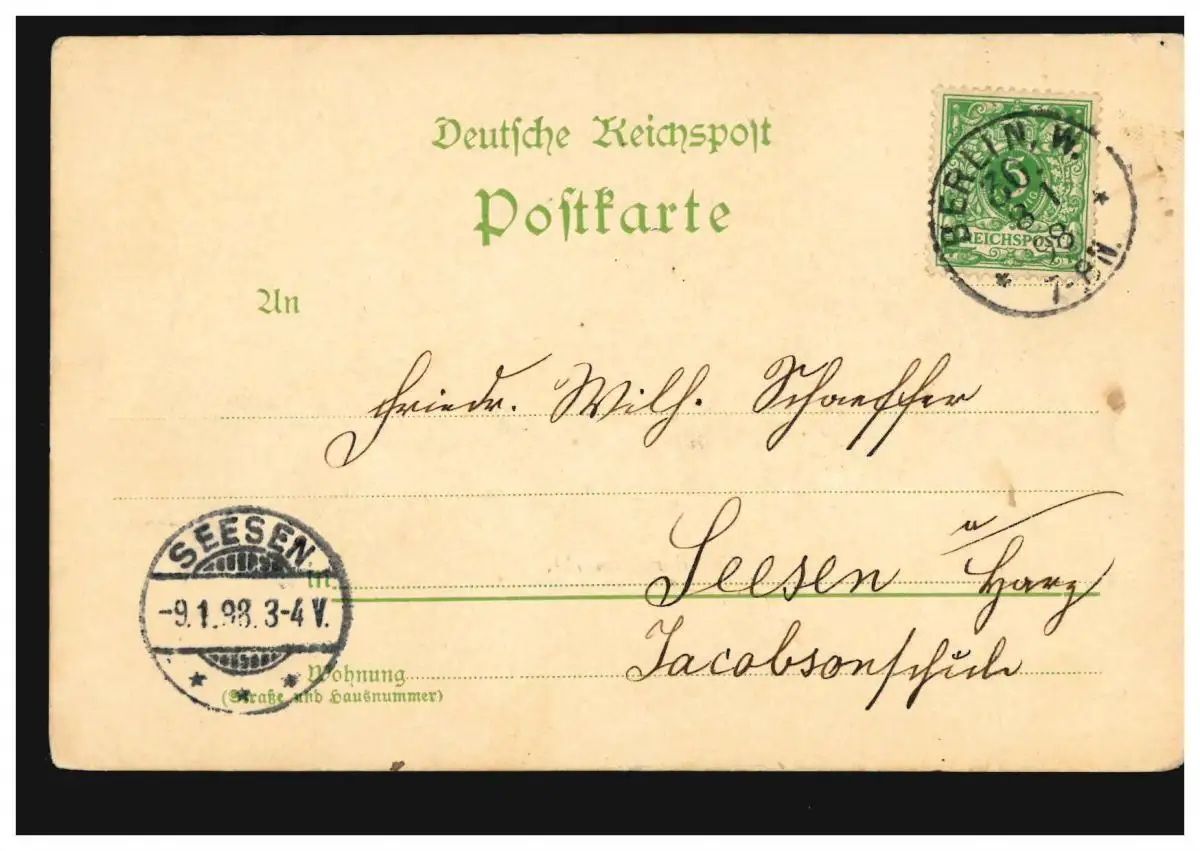 Deutsche Reichspost
Postkarte
BERLIN, W.
8 1
98
7-8N.
5
REICHSPOST
An
Friedr. Wilh. Schaeffer
Seesen a/Harz
in
Jacobsonschule
SEESEN.
-9.1.98.3-4V.
Wohnung
(Straße und Hausnummer)